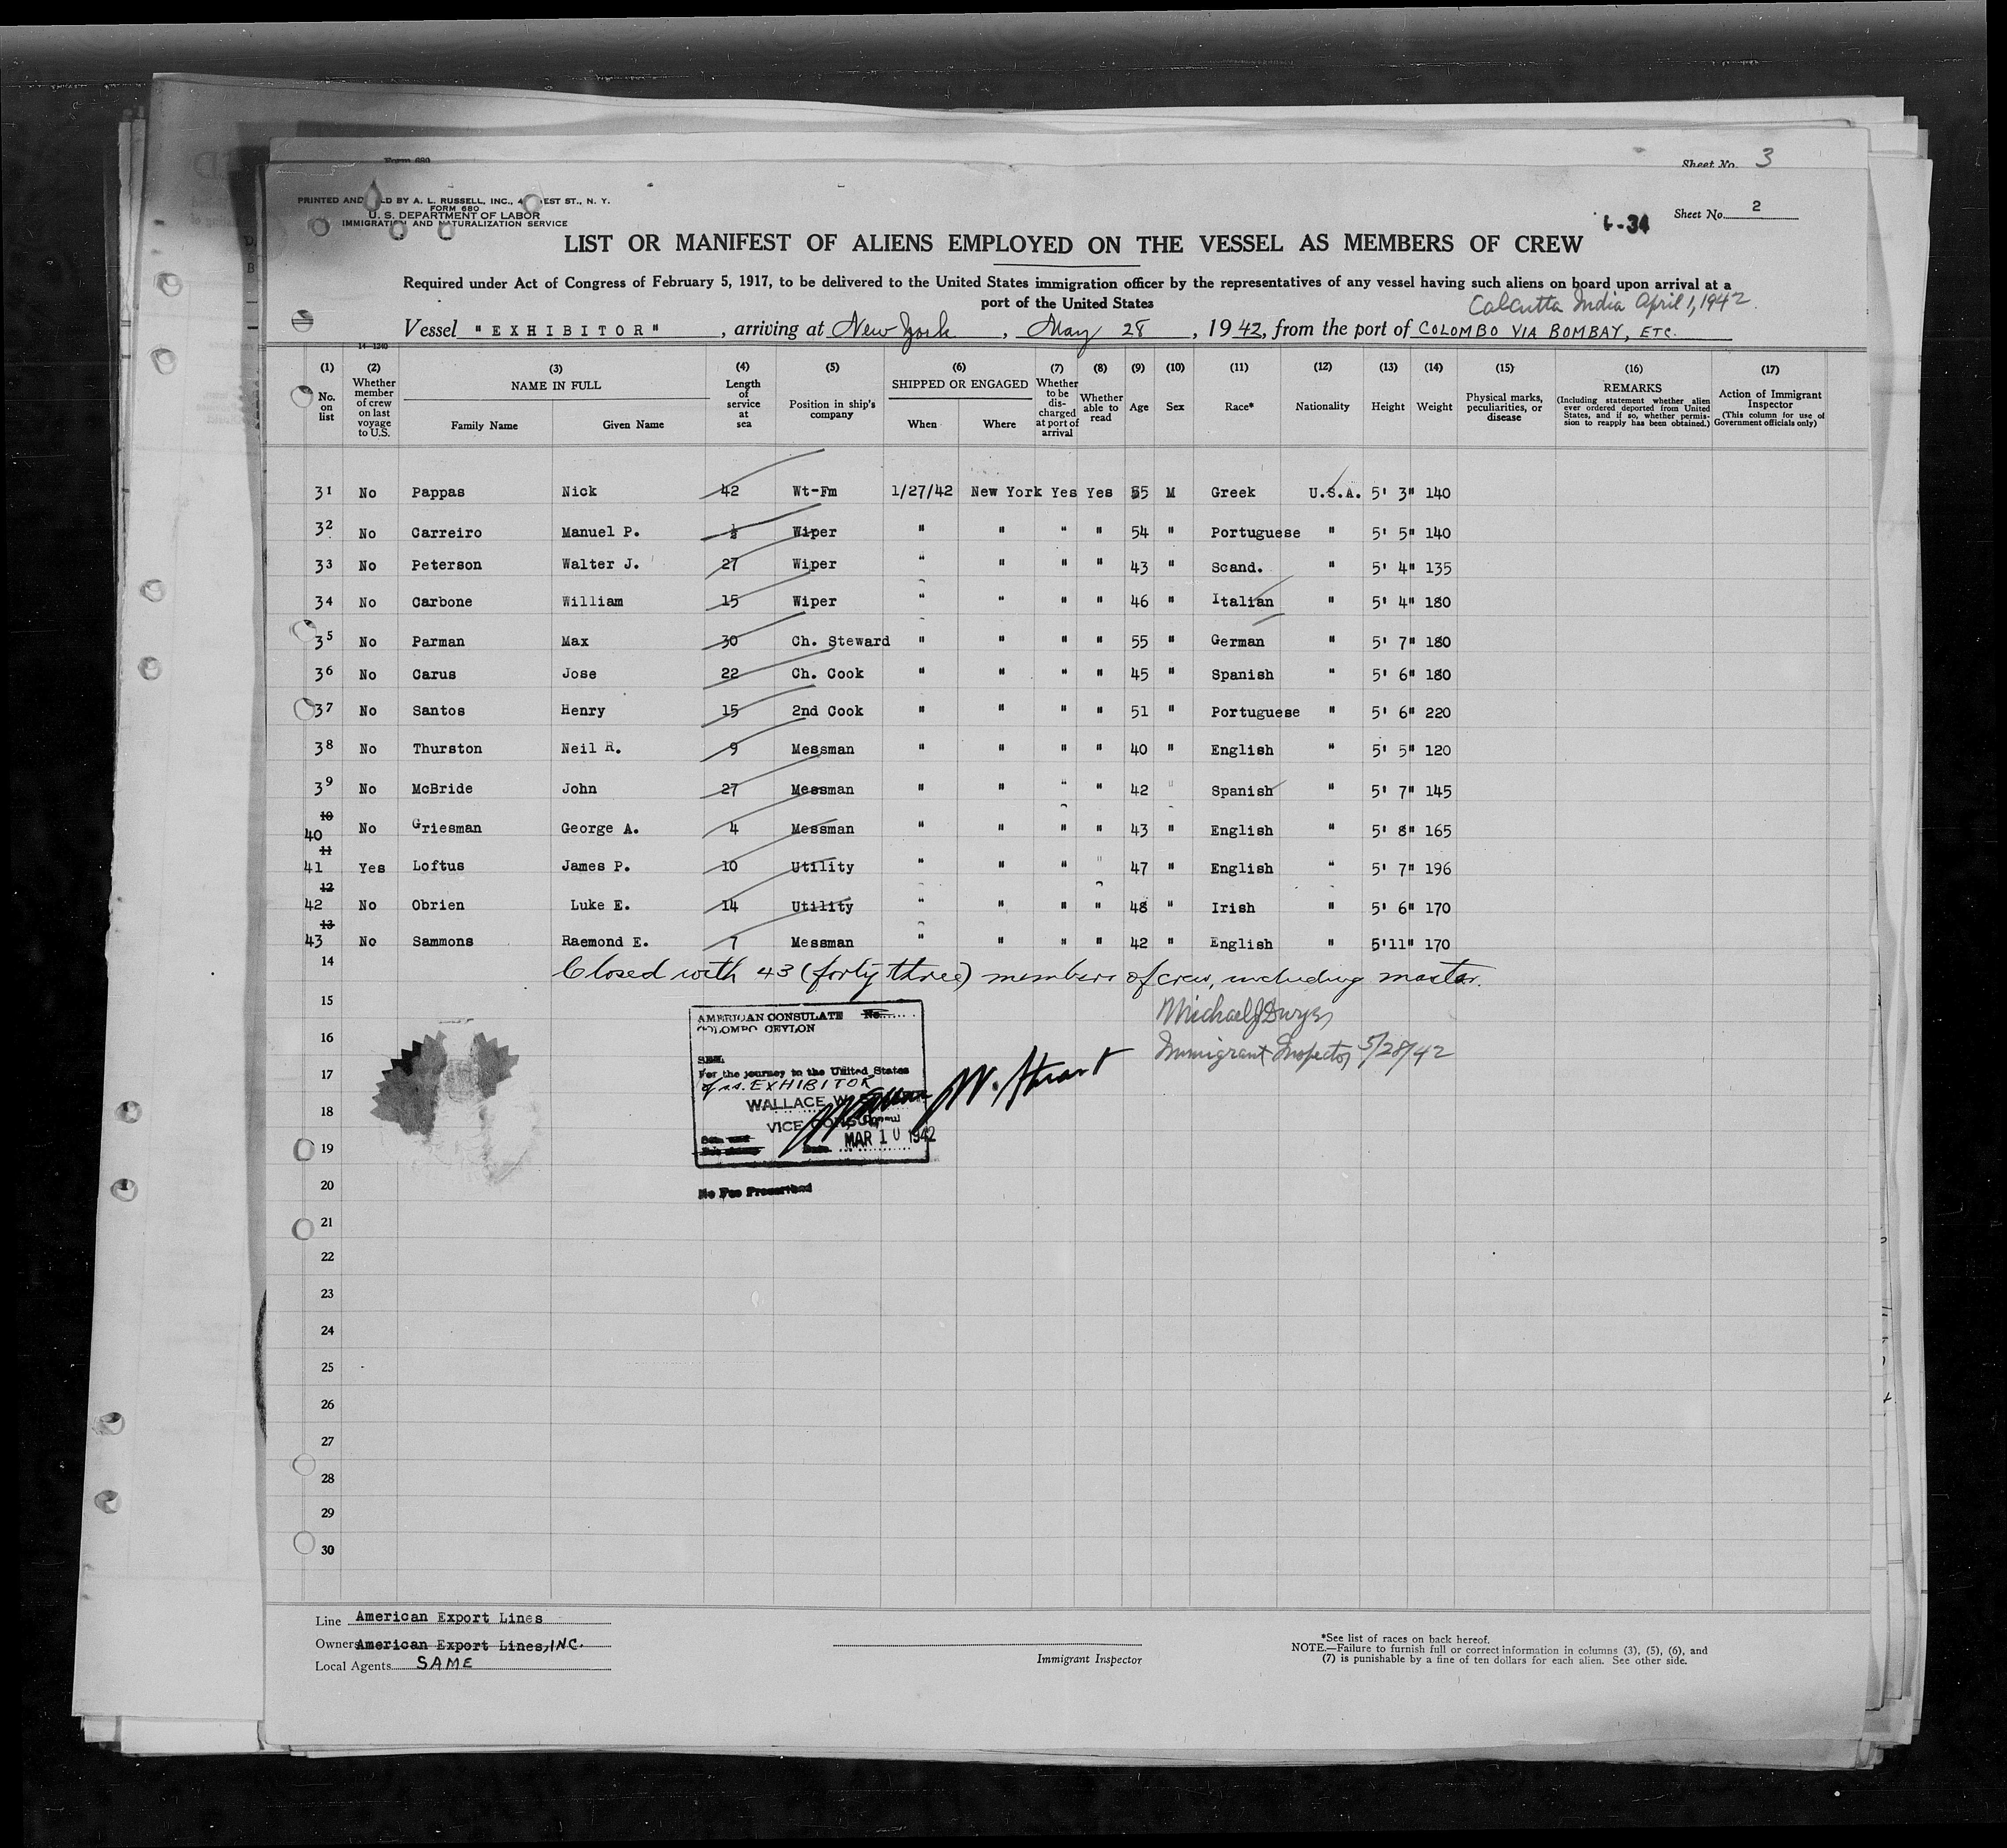 Form 680
Sheet No. 3
PRINTED AND LD BY A. L. RUSSELL, INC., 4 EST ST., N. Y.
FORM 680
U. S. DEPARTMENT OF LABOR
IMMIGRATION AND NATURALIZATION SERVICE
Sheet No. 2
-34
LIST OR MANIFEST OF ALIENS EMPLOYED ON THE VESSEL AS MEMBERS OF CREW
Required under Act of Congress of February 5, 1917, to be delivered to the United States immigration officer by the representatives of any vessel having such aliens on board upon arrival at a
port of the United States
Calcutta India April 1, 1942
Vessel "EXHIBITOR", arriving at New York, May 28, 1942, from the port of COLOMBO VIA BOMBAY, ETC.
14-1240
(1) No. on list
(2) Whether member of crew on last voyage to U.S.
(3) NAME IN FULL Family Name Given Name
(4) Length of service at sea
(5) Position in ship's company
(6) SHIPPED OR ENGAGED When Where
(7) Whether to be discharged at port of arrival
(8) Whether able to read
(9) Age
(10) Sex
(11) Race*
(12) Nationality
(13) Height
(14) Weight
(15) Physical marks, peculiarities, or disease
(16) REMARKS (Including statement whether alien ever ordered deported from United States, and if so, whether permission to reapply has been obtained.)
(17) Action of Immigrant Inspector (This column for use of Government officials only)
31 No Pappas Nick 42 Wt-Fm 1/27/42 New York Yes Yes 55 M Greek U.S.A. 5' 3" 140
32 No Carreiro Manuel P. ½ Wiper " " " " 54 " Portuguese " 5' 5" 140
33 No Peterson Walter J. 27 Wiper " " " " 43 " Scand. " 5' 4" 135
34 No Carbone William 15 Wiper " " " " 46 " Italian " 5' 4" 180
35 No Parman Max 30 Ch. Steward " " " " 55 " German " 5' 7" 180
36 No Carus Jose 22 Ch. Cook " " " " 45 " Spanish " 5' 6" 180
37 No Santos Henry 15 2nd Cook " " " " 51 " Portuguese " 5' 6" 220
38 No Thurston Neil R. 9 Messman " " " " 40 " English " 5' 5" 120
39 No McBride John 27 Messman " " " " 42 " Spanish " 5' 7" 145
10
40 No Griesman George A. 4 Messman " " " " 43 " English " 5' 8" 165
11
41 Yes Loftus James P. 10 Utility " " " " 47 " English " 5' 7" 196
12
42 No Obrien Luke E. 14 Utility " " " " 48 " Irish " 5' 6" 170
13
43 No Sammons Raemond E. 7 Messman " " " " 42 " English " 5'11" 170
14
Closed with 43 (forty three) members of crew, including master.
15
Michael J Dwyer
Immigrant Inspector 5/28/42
AMERICAN CONSULATE No.
COLOMBO CEYLON
SEEN
For the journey to the United States
of s.s. EXHIBITOR
WALLACE W. Stuart
VICE CONSUL
W. Stuart
Date MAR 10 1942
No Fee Prescribed
16
17
18
19
20
21
22
23
24
25
26
27
28
29
30
Line American Export Lines
Owners American Export Lines, INC.
Local Agents SAME
Immigrant Inspector
*See list of races on back hereof.
NOTE.—Failure to furnish full or correct information in columns (3), (5), (6), and
(7) is punishable by a fine of ten dollars for each alien. See other side.